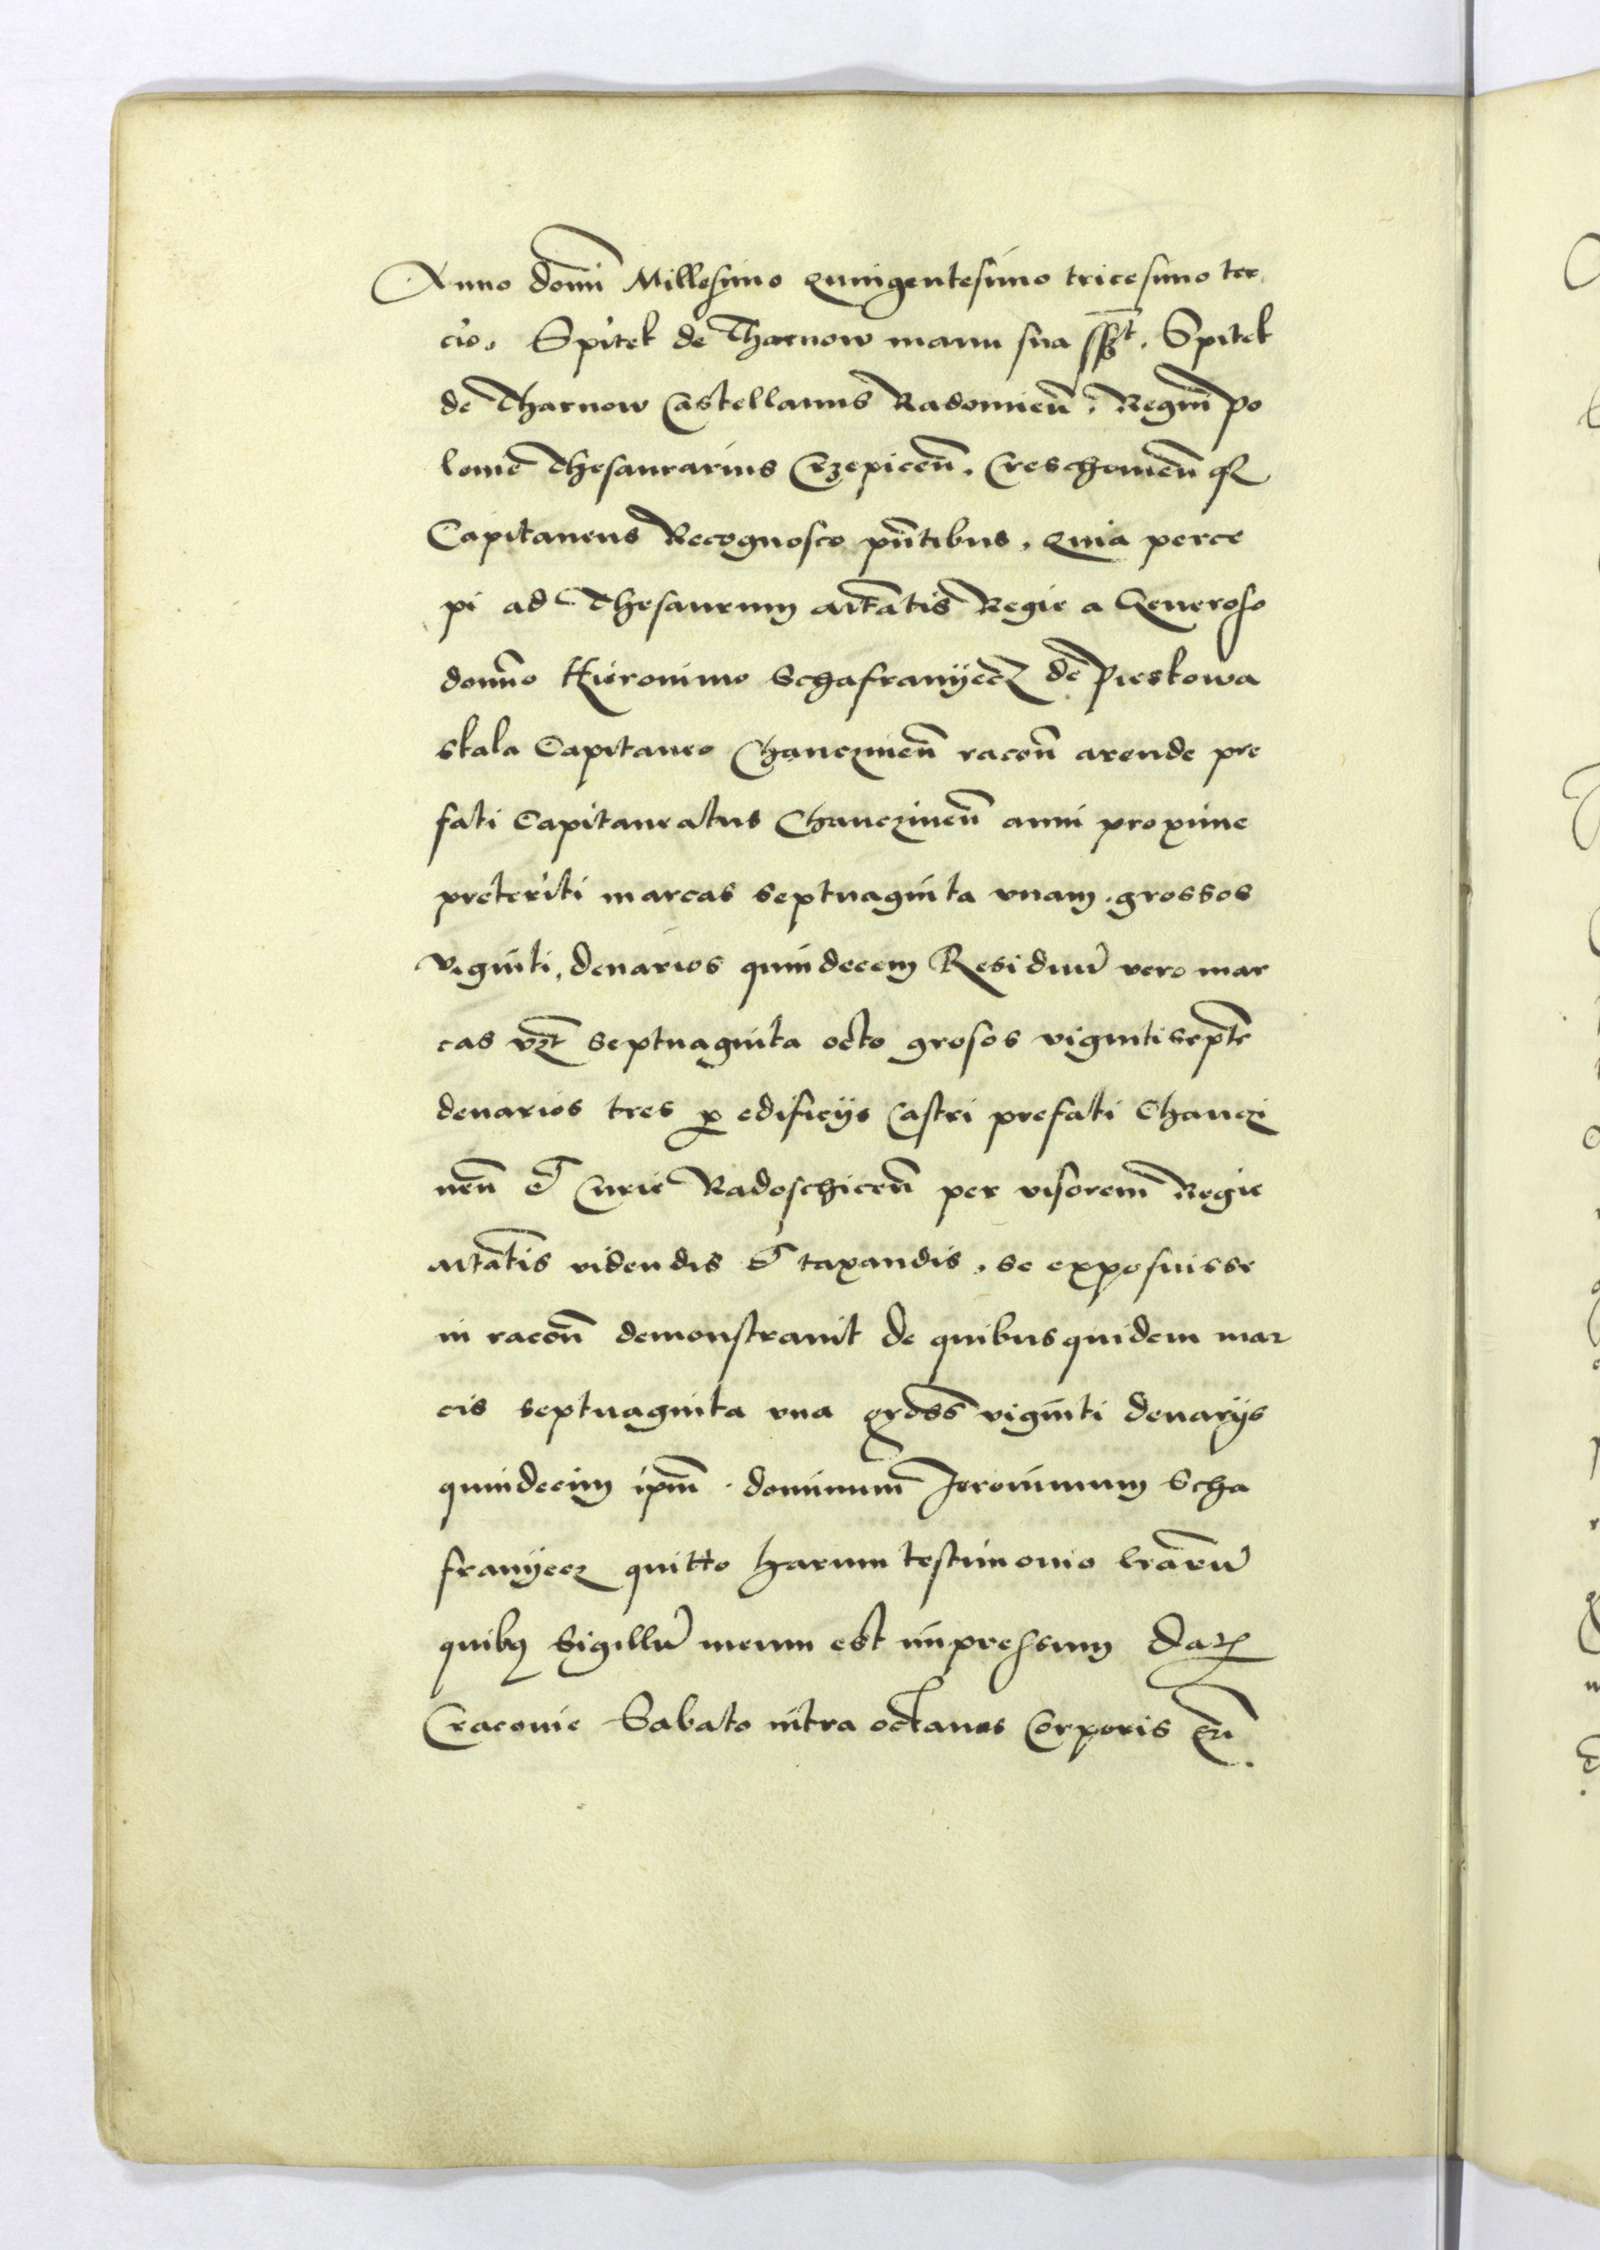 Anno domī Millesimo Quingentesimo tricesimo ter
cio. Spitek de Tharnow manu sua sszt. Spitek
de Tharnow Castellanus Radomieñ. Regni Po
lonie Thesaurarius Crzepiceñ. Creschomeñ qz
Capitaneus Recognosco pñtibus. Quia perce
pi ad Thesaurum Mtatis Regie a Generoso
domño Hieronimo Schafranyecz de Pieskowa
skala Capitaneo Chanczineñ racoñ arende pre
fati Capitaneatus Chanczineñ anni proxime
preteriti marcas septuaginta vnam. grossos
viginti. denarios quindecem Residuū vero mar
cas vzt septuaginta octo grosos vigintisepte
denarios tres p edificijs Castri prefati Chanczi
neñ et Curie Radoschiceñ per visorem Regie
Mtatis videndis et taxandis. se exposuisse
in racoñ demonstrauit de quibusquidem mar
cis septuaginta vna gross viginti denarijs
quindecim ipm̄ dominum Jeronimum Scha
franyecz quitto harum testimonio lrarū
quibus Sigillū meum est impressum Datꝫ
Cracouie Sabato intra octauas Corporis xpi.